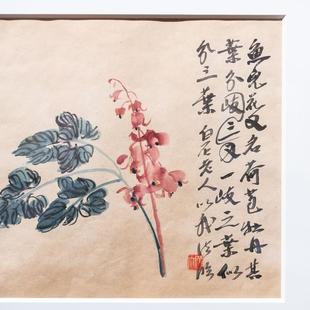 魚兒花又名荷苞牡丹其
葉分
一歧之葉似
分三葉白石老人以我法